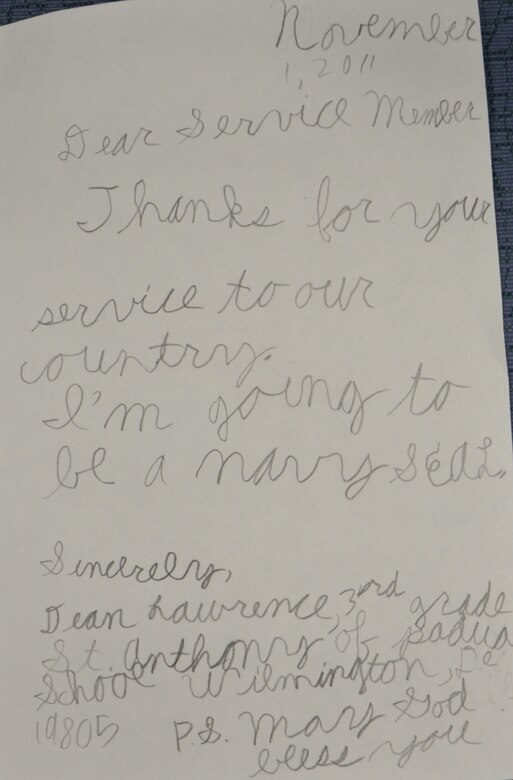 November
1, 2011
Dear Service Member
Thanks for your
service to our
country.
I'm going to
be a navy SEAL.
Sincerely,
Dean Lawrence, 3rd grade
St. Anthony of padua
School Wilmington, De
19805 P.S. May God
bless you